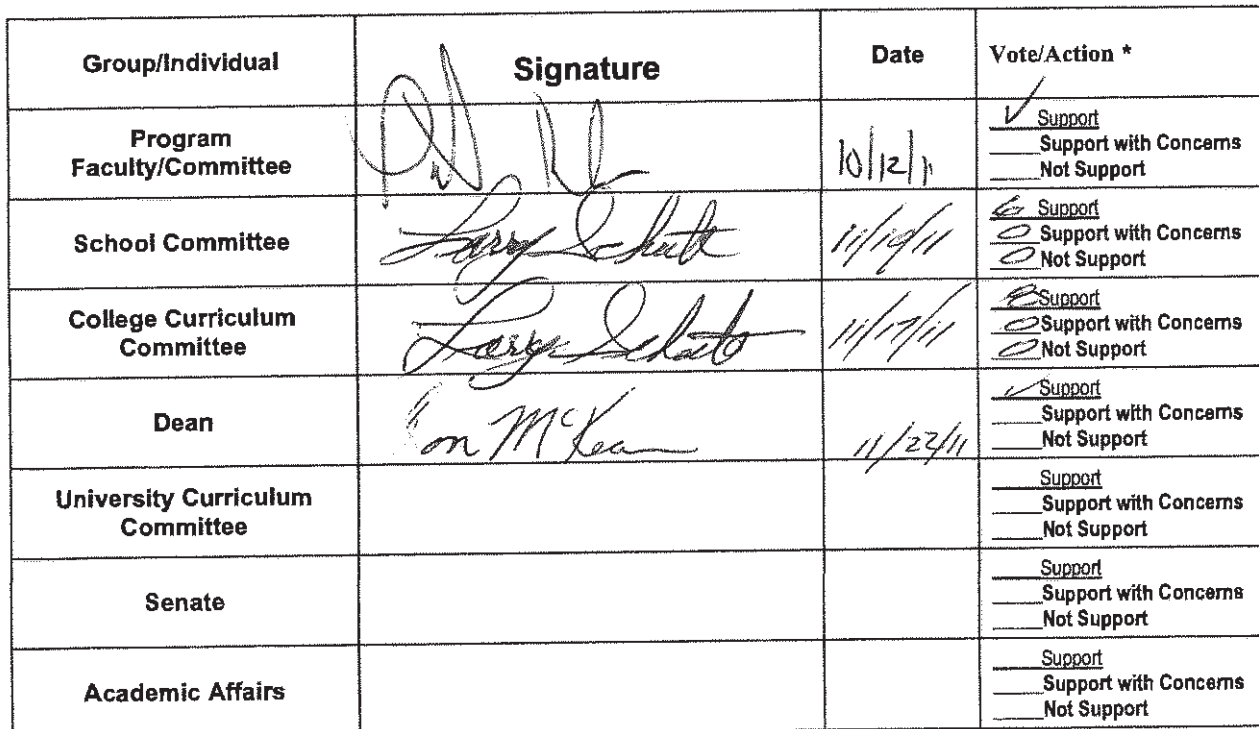 Group/Individual Signature Date Vote/Action *
Program
Faculty/Committee
10/12/11
✓ Support
Support with Concerns
Not Support
School Committee
Larry Schult
11/10/11
6 Support
0 Support with Concerns
0 Not Support
College Curriculum
Committee
Larry Schult
11/17/11
8 Support
0 Support with Concerns
0 Not Support
Dean
Ron McKean
11/22/11
✓ Support
Support with Concerns
Not Support
University Curriculum
Committee
Support
Support with Concerns
Not Support
Senate
Support
Support with Concerns
Not Support
Academic Affairs
Support
Support with Concerns
Not Support